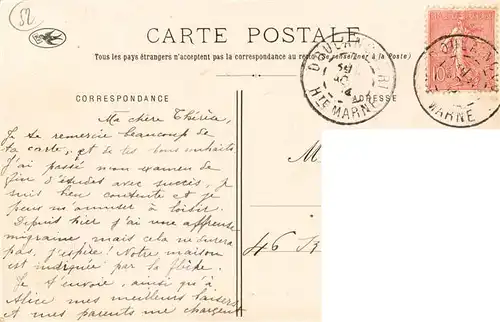 52
CARTE POSTALE
Tous les pays étrangers n'acceptent pas la correspondance au recto (Se renseigner à la Poste)
CORRESPONDANCE
ADRESSE
DOULEVANT
HTE MARNE
MARNE
10
Ma chère Thérèse,
Je te remercie beaucoup de
ta carte, et de tes bons souhaits
J'ai passé mon examen de
fin d'études avec succès, je
suis bien contente et je
peux m'amuser à loisir.
Depuis hier j'ai une affreuse
migraine, mais cela ne durera
pas, j'espère! Notre maison
est indiquée par la flèche.
Je t'envoie, ainsi qu'à
Alice mes meilleurs baisers
et mes parents me chargent
M.
46 R